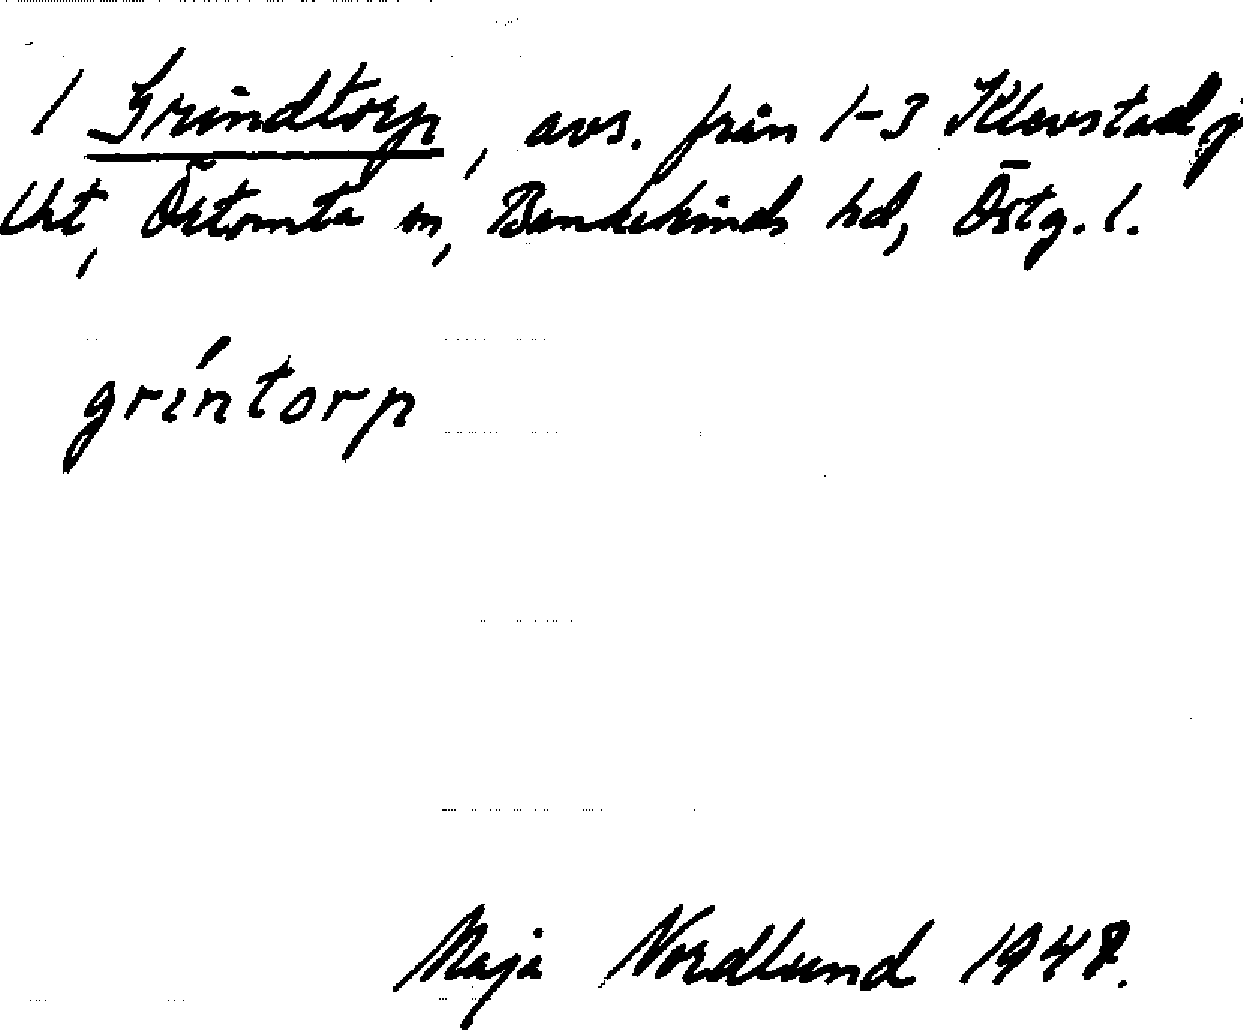 1 Grindtorp, avs. från 1-3 Klevstad
Öztomta sn, Bankekinds hd, Östg. l.
gríntorp
Maja Nordlund 1948.